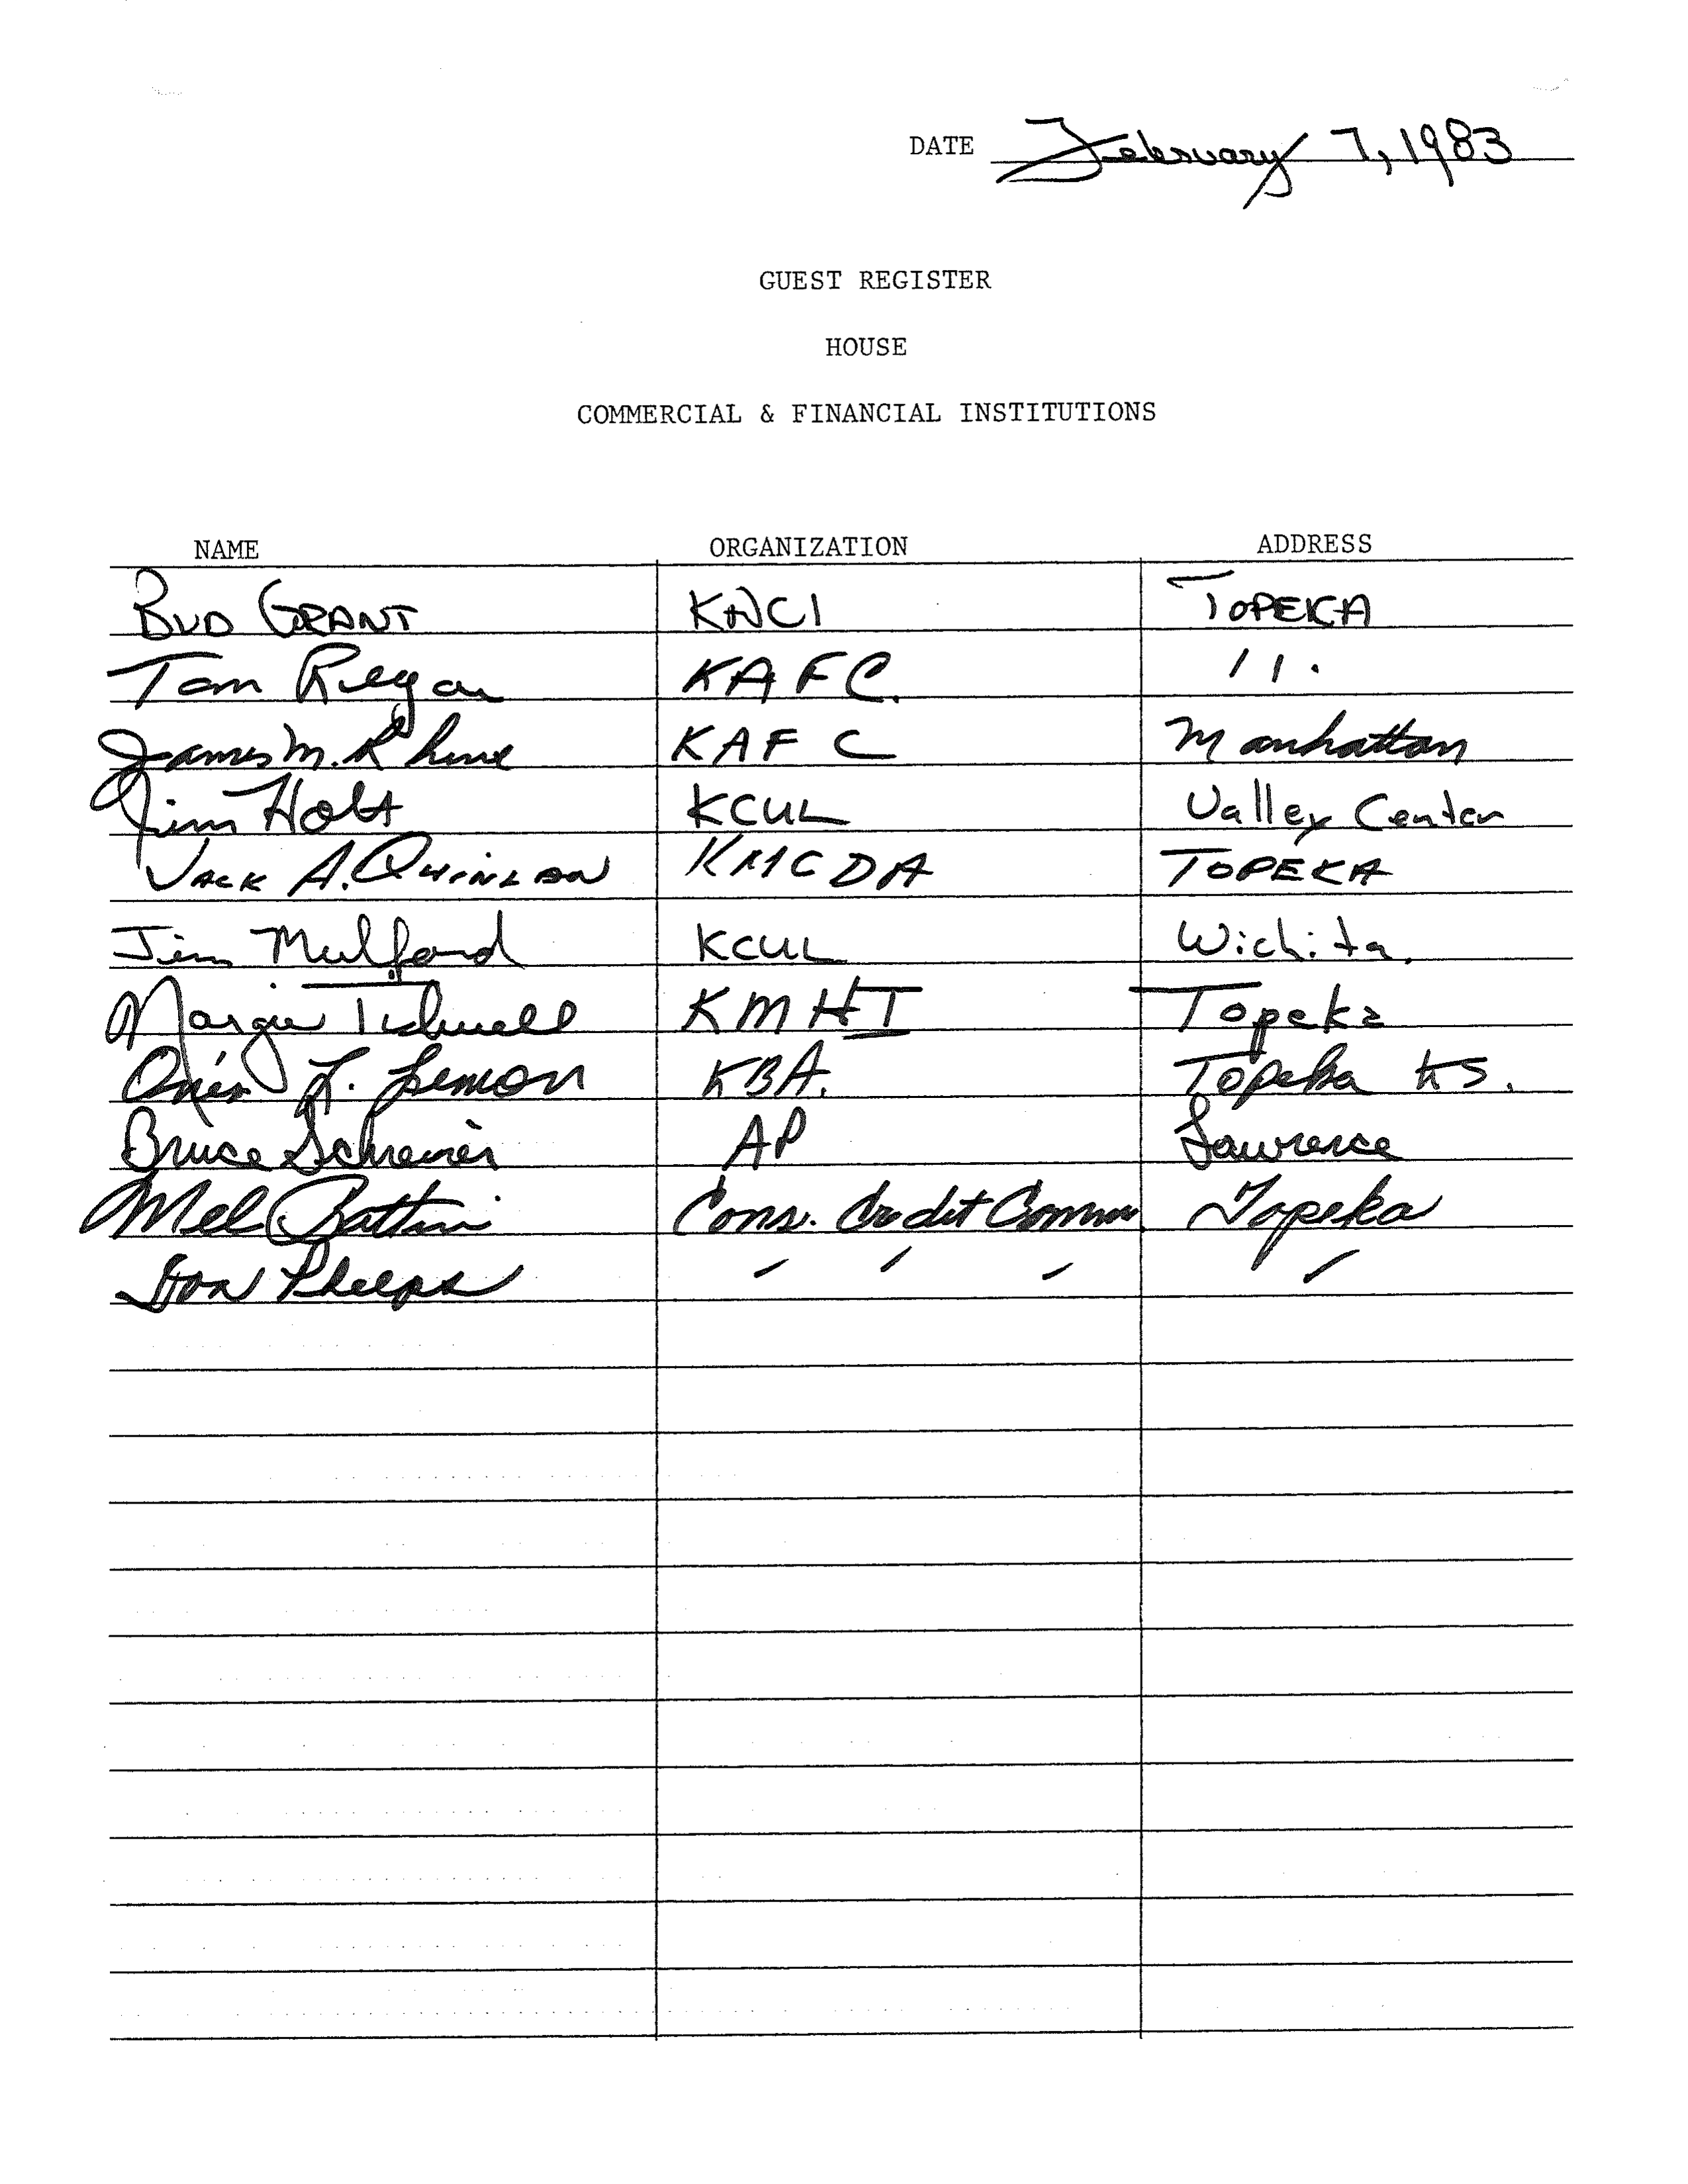 DATE February 7, 1983
GUEST REGISTER
HOUSE
COMMERCIAL & FINANCIAL INSTITUTIONS
NAME ORGANIZATION ADDRESS
BUD GRANT KNCI TOPEKA
Tom Regan KAFC. 11.
James M. Rhine KAFC Manhattan
Jim Holt KCUL Valley Center
JACK A. QUINLAN KMCDA TOPEKA
Jim Mulford KCUL Wichita.
Margie KMHI Topeka
L. Lemon KBA. Topeka KS.
Bruce Schreiner AP Lawrence
Mel Battin Cons. Credit Comm Topeka
Don Phelps